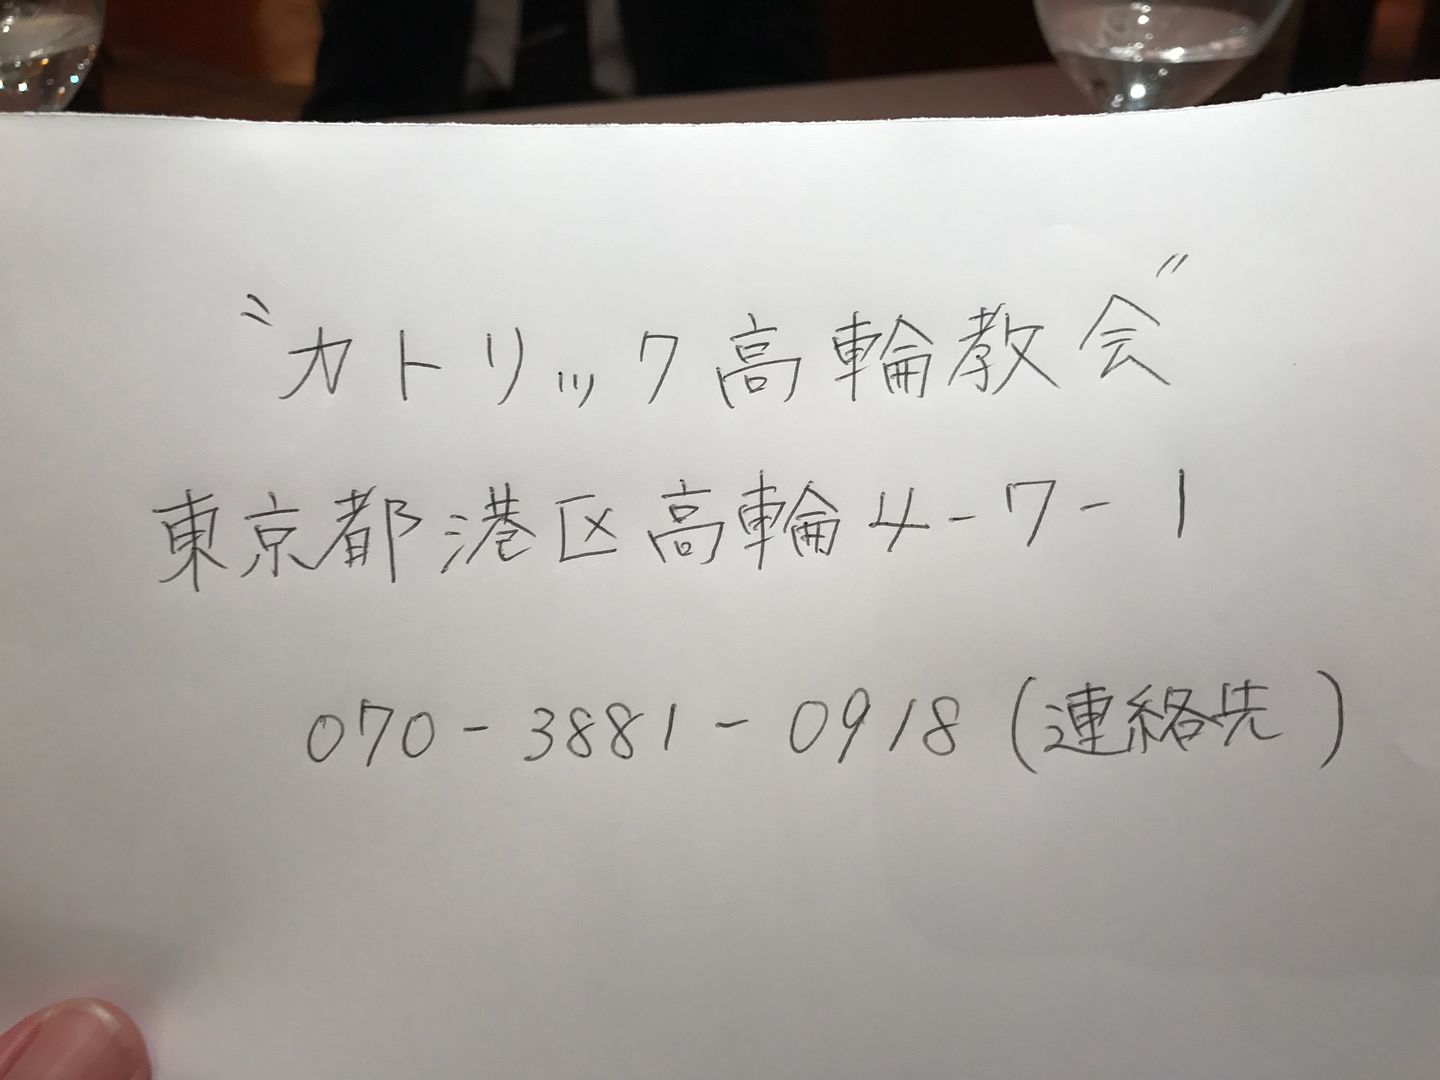 〝カトリック高輪教会〞
東京都港区高輪4-7-1
070-3881-0918(連絡先)